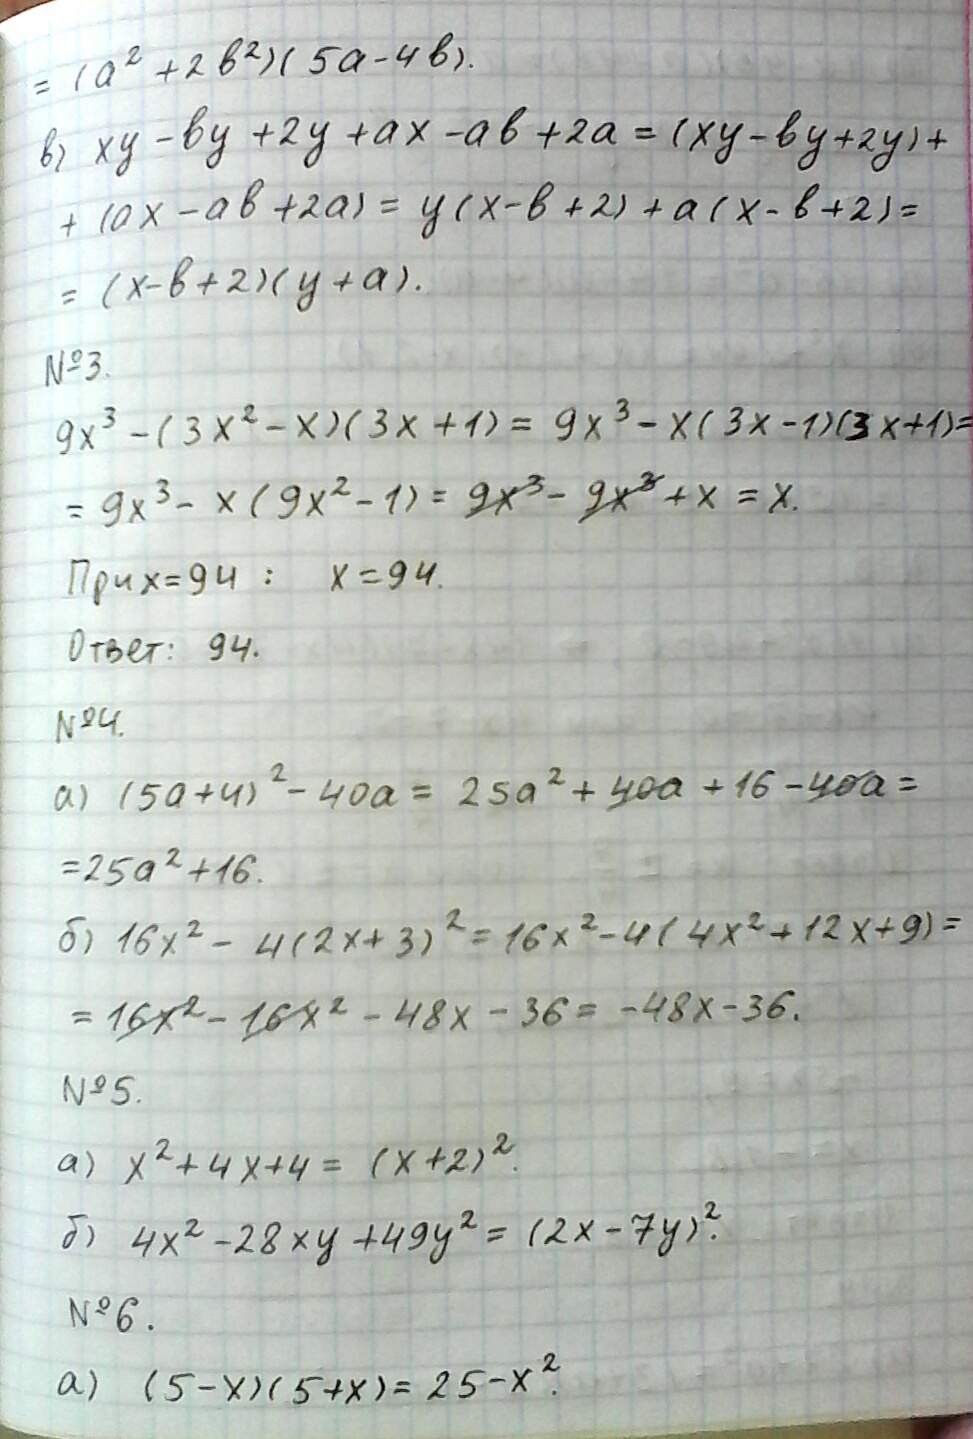 = (a² + 2b²)(5a - 4b).
в) xy - by + 2y + ax - ab + 2a = (xy - by + 2y) +
+ (ax - ab + 2a) = y(x - b + 2) + a(x - b + 2) =
= (x - b + 2)(y + a).
№3.
9x³ - (3x² - x)(3x + 1) = 9x³ - x(3x - 1)(3x + 1) =
= 9x³ - x(9x² - 1) = 9x³ - 9x³ + x = x.
При x = 94 : x = 94.
Ответ: 94.
№4.
а) (5a + 4)² - 40a = 25a² + 40a + 16 - 40a =
= 25a² + 16.
б) 16x² - 4(2x + 3)² = 16x² - 4(4x² + 12x + 9) =
= 16x² - 16x² - 48x - 36 = -48x - 36.
№5.
а) x² + 4x + 4 = (x + 2)².
б) 4x² - 28xy + 49y² = (2x - 7y)².
№6.
а) (5 - x)(5 + x) = 25 - x².